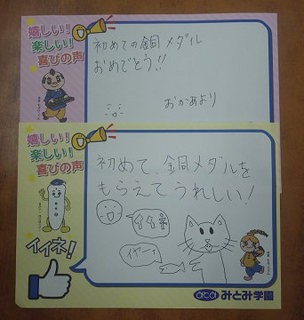 嬉しい！
楽しい！
喜びの声
初めての銅メダル
おめでとう!!
おかあより
嬉しい！
楽しい！
喜びの声
初めて、銅メダルを
もらえてうれしい！
イイネ！
みとみ学園